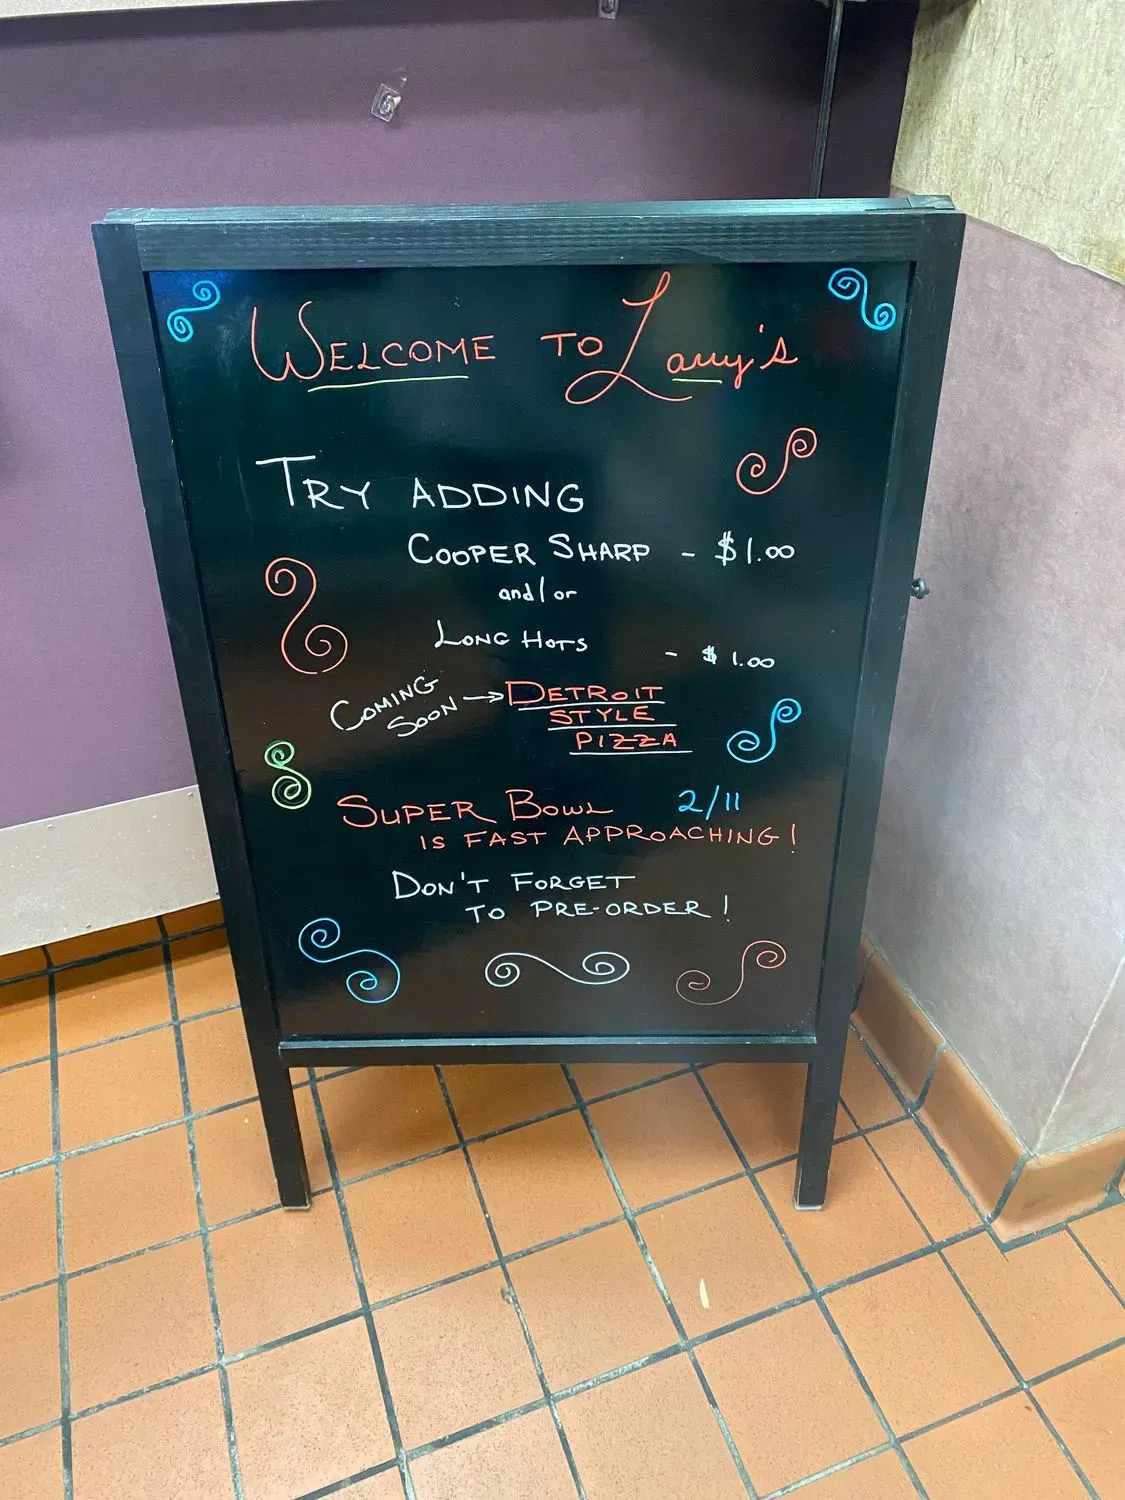 WELCOME TO Larry's
TRY ADDING
COOPER SHARP - $1.00
and/or
LONG HOTS - $1.00
COMING
SOON → DETROIT
STYLE
PIZZA
SUPER BOWL 2/11
IS FAST APPROACHING!
DON'T FORGET
TO PRE-ORDER!